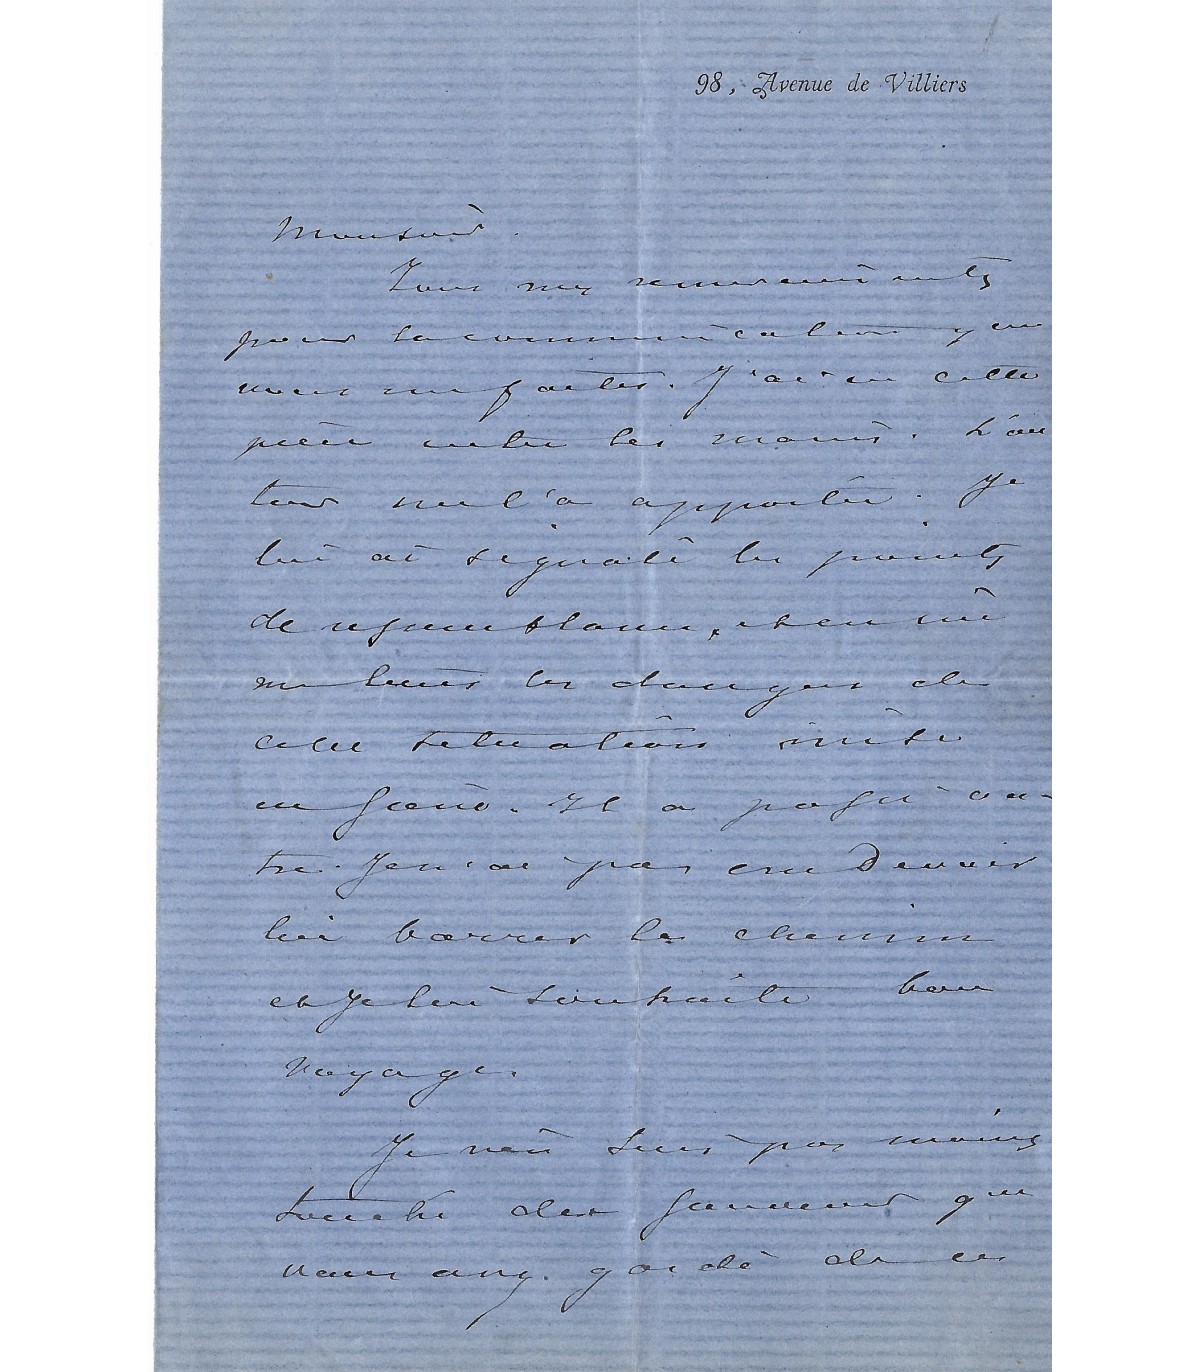 98, Avenue de Villiers
Monsieur.
Tous mes remerciements
pour la communication que
vous me faites. J'ai eu cette
pièce entre les mains. L'au
teur me l'a apportée. Je
lui ai signalé les points
de ressemblance, et en mê
me temps les dangers de
cette situation mise
en scène. Il a passé ou-
tre. Je n'ai pas cru devoir
lui barrer le chemin
et je lui souhaite bon
voyage.
Je n'en suis pas moins
touché du souvenir que
vous avez gardé de ces